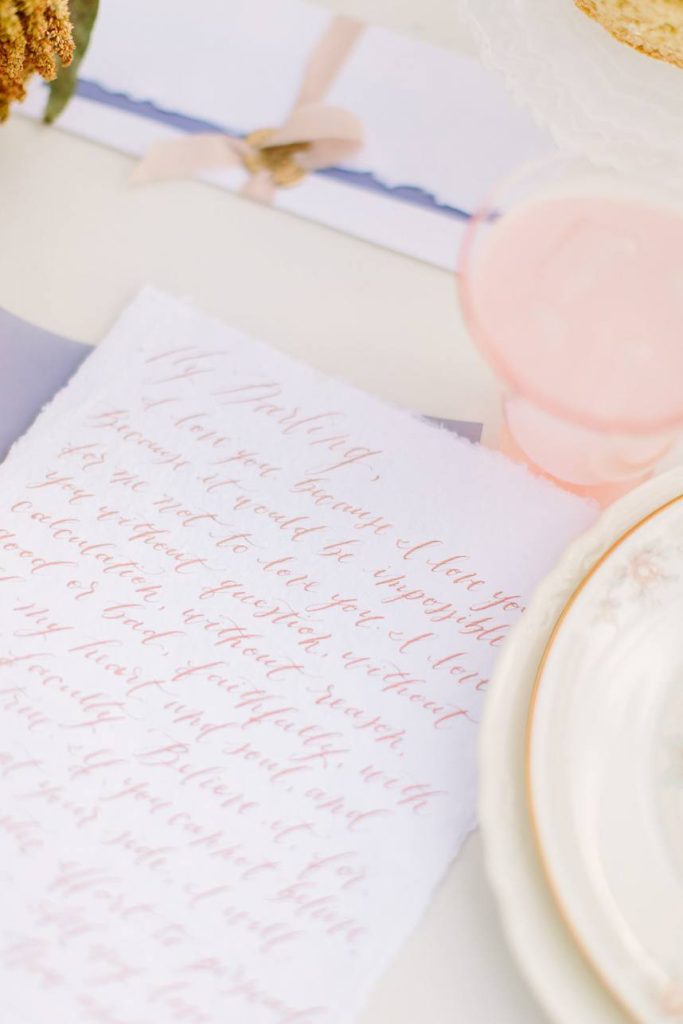 My Darling,
I love you because I love you
Because it would be impossible
for me not to love you. I love
you without question, without
calculation, without reason,
good or bad, faithfully, with
my heart and soul, and
faculty. Believe it, for
true. If you cannot believe
at your side, I will
effort to
my love